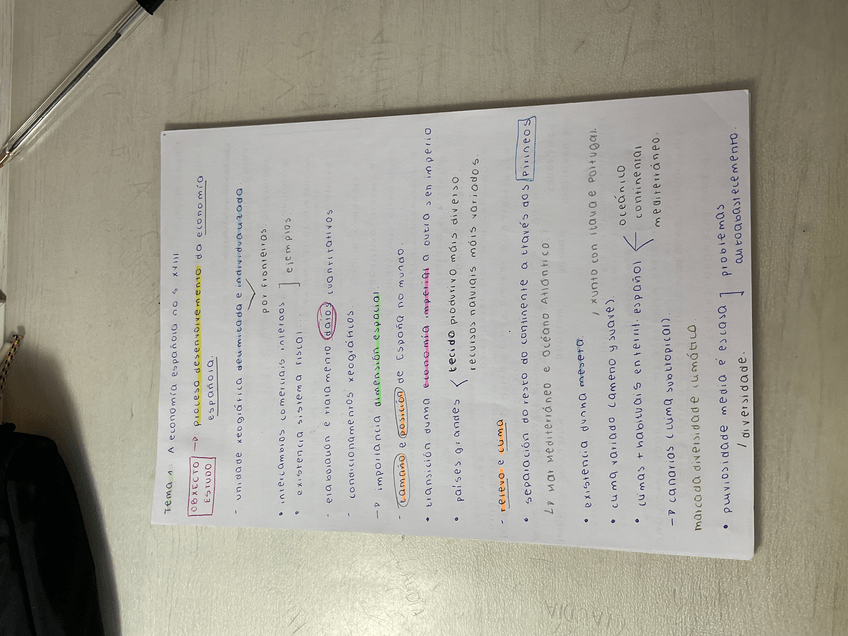 Tema 1. A economía española no s XVIII
OBXECTO ESTUDO → proceso desenvolvemento da economía
española.
- unidade xeográfica delimitada e individualizada
por fronteiras
• intercambios comerciais internos ] ejemplos
• existencia sistema fiscal...
- elaboración e tratamento datos cuantitativos
- condicionamentos xeográficos.
→ importancia dimensión espacial
- tamaño e posición de España no mundo.
• transición dunha economía imperial a outra sen imperio
• países grandes < tecido produtivo máis diverso
recursos naturais máis variados.
- relevo e clima
• separación do resto do continente a través dos Pirineos
↳ Mar Mediterráneo e Océano Atlántico.
• existencia dunha meseta.
• clima variado (ameno y suave) / xunto con Italia e Portugal.
• climas + habituais en territ. español < oceánico
continental
mediterráneo.
→ canarias (clima subtropical)
marcada diversidade climática.
• pluviosidade media é escasa ] problemas
autoabastecemento.
/ diversidade.
CLAUDIA